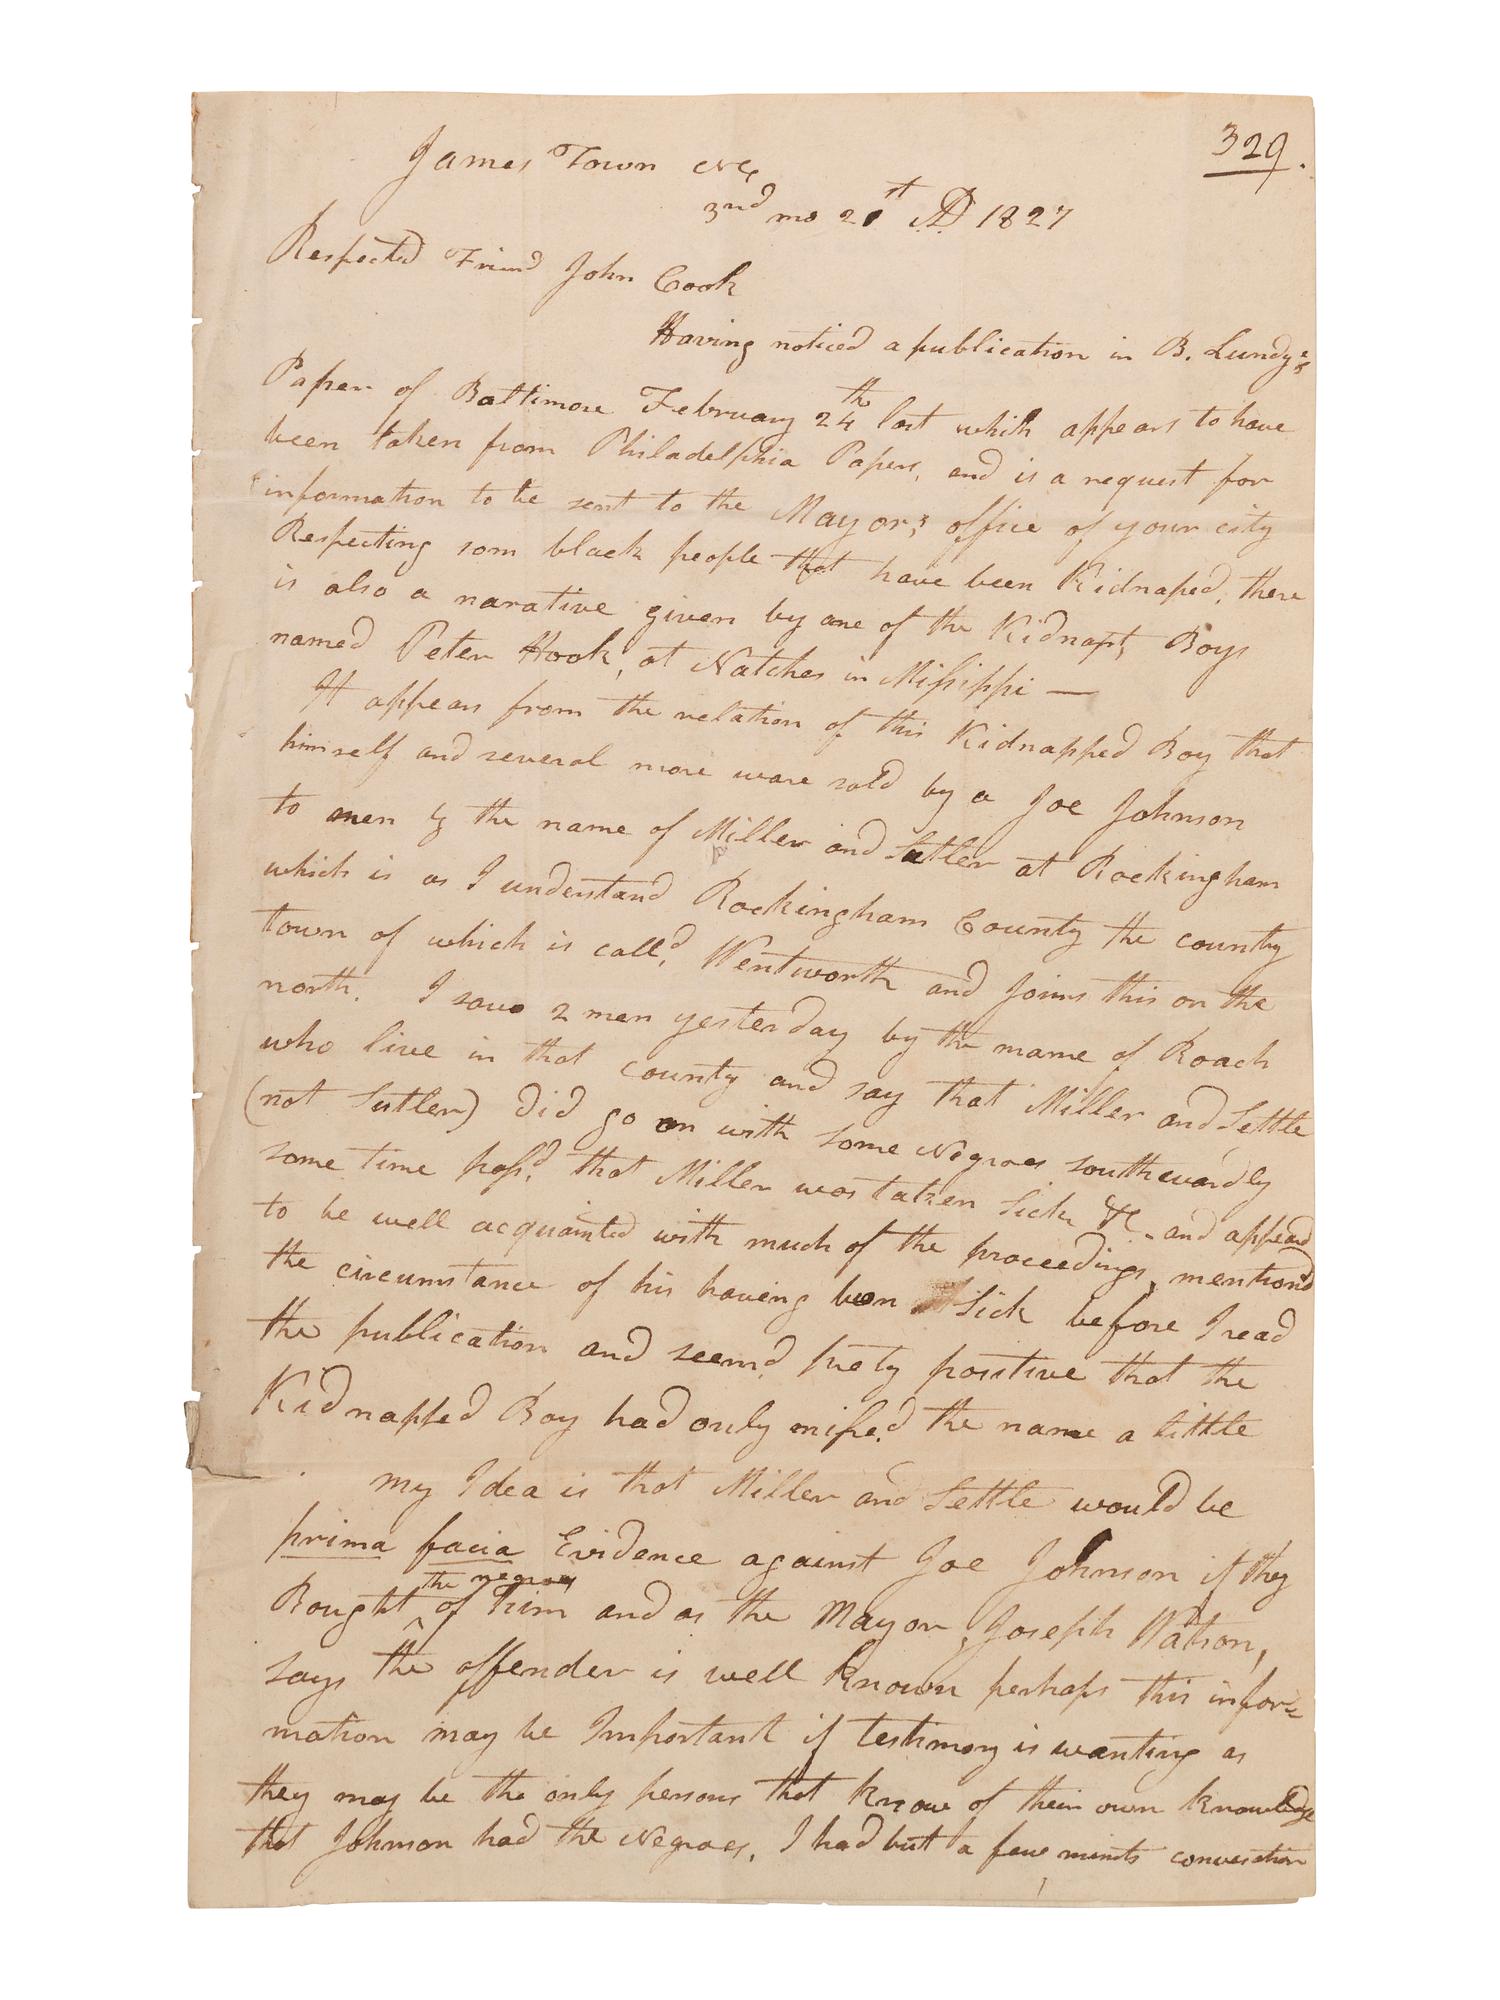 329.
James Town NC
3nd mo 21st AD 1827
Respected Friend John Cook
Having noticed a publication in B. Lundy's
Paper of Baltimore February 24th last which appears to have
been taken from Philadelphia Papers, and is a request for
information to be sent to the Mayor,s office of your city
Respecting som black people that have been Kidnaped, there
is also a narative given by one of the Kidnapt Boys
named Peter Hook, at Natches in Missippi —
It appears from the relation of this Kidnapped Boy that
himself and several more ware sold by a Joe Johnson
to men by the name of Miller and Sutler at Rockingham
which is as I understand Rockingham County the county
town of which is call,d Wentworth and Joins this on the
north. I saw 2 men yesterday by the name of Roach
who live in that county and say that Miller and Settle
(not Sutler) did go on with some Negroes southwardly
some time pass,d that Miller was taken Sick &C. and appeard
to be well acquainted with much of the proceedings, mentiond
the circumstance of his having been Sick before I read
the publication and seem,d prety positive that the
Kidnapped Boy had only miss,d the name a little
my Idea is that Miller and Settle would be
prima facia Evidence against Joe Johnson if they
Bought ^ the negroes of him and as the Mayor, Joseph Watson,
says the offender is well known perhaps this infor=
mation may be Important if testimony is wanting as
they may be the only persons that know of their own knowledge
that Johnson had the Negroes, I had but a few minits conversation